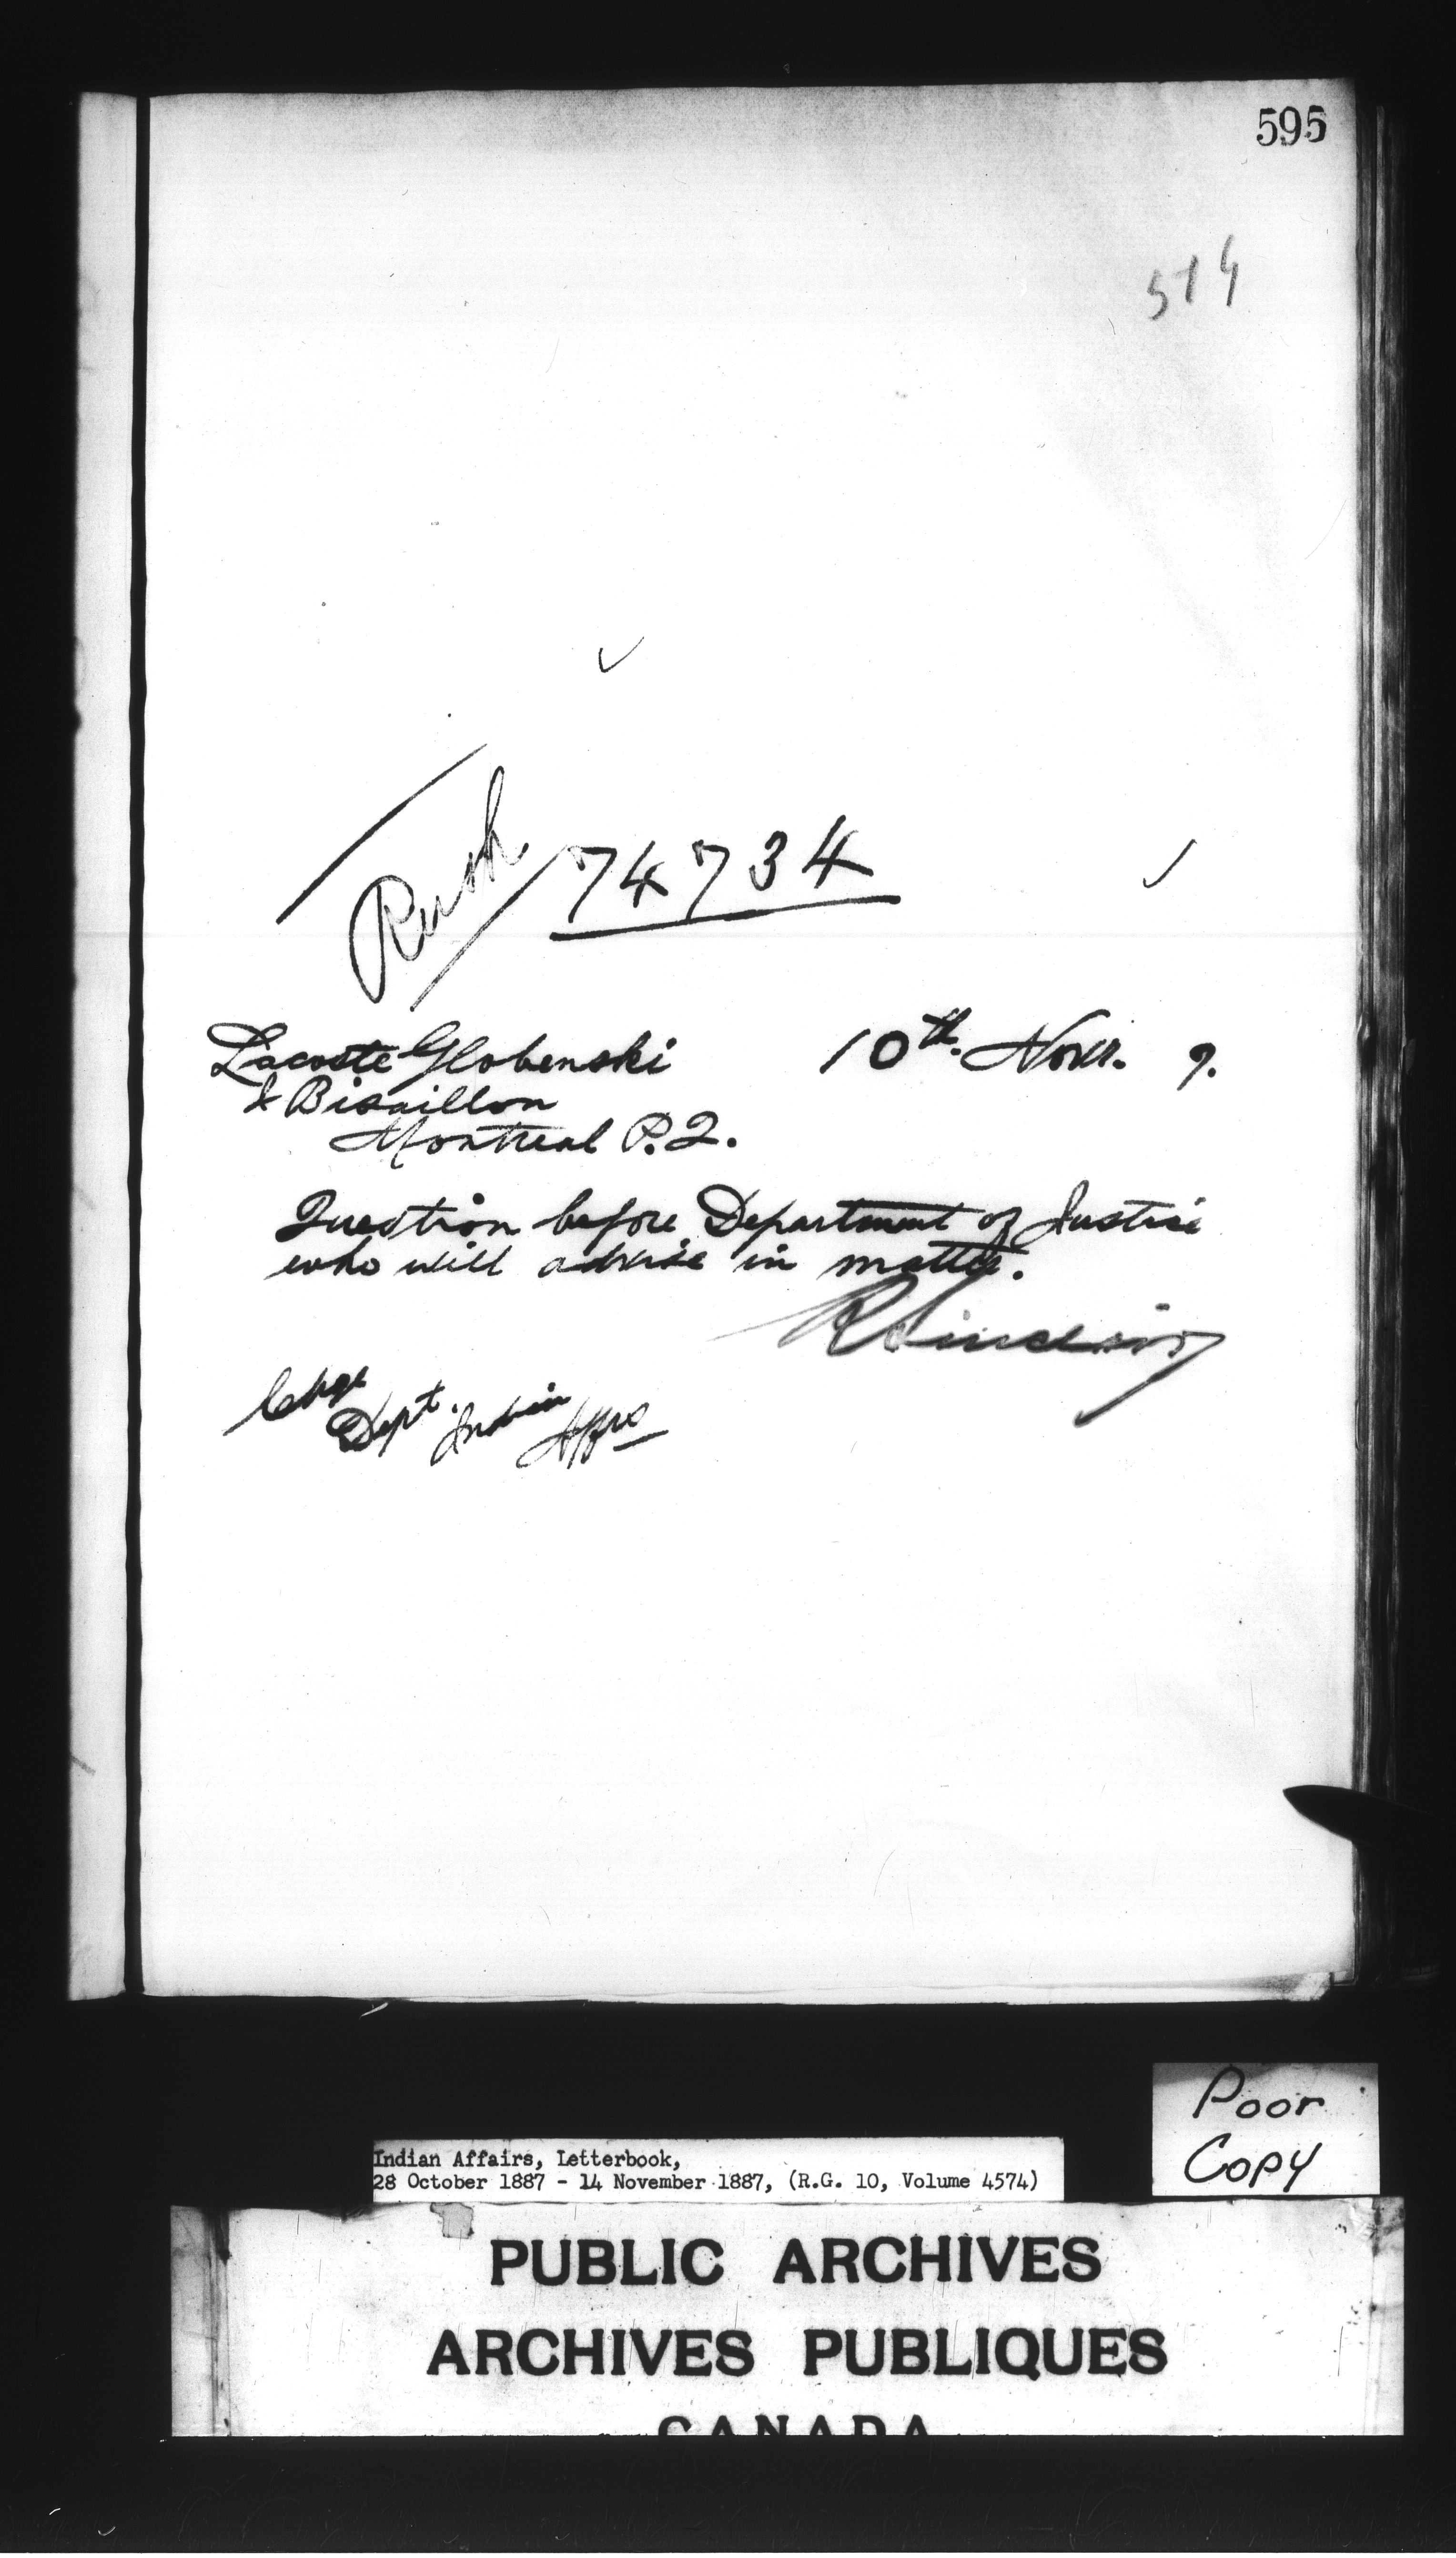 595
514
Rush
74734
Lacoste Globenski 10th. Novr. 7.
& Bisaillon
Montreal P.Q.
Question before Department of Justice
who will advise in matter.
R Sinclair
Chge
Dept. Indian Affrs
Poor
Copy
Indian Affairs, Letterbook,
28 October 1887 - 14 November 1887, (R.G. 10, Volume 4574)
PUBLIC ARCHIVES
ARCHIVES PUBLIQUES
CANADA